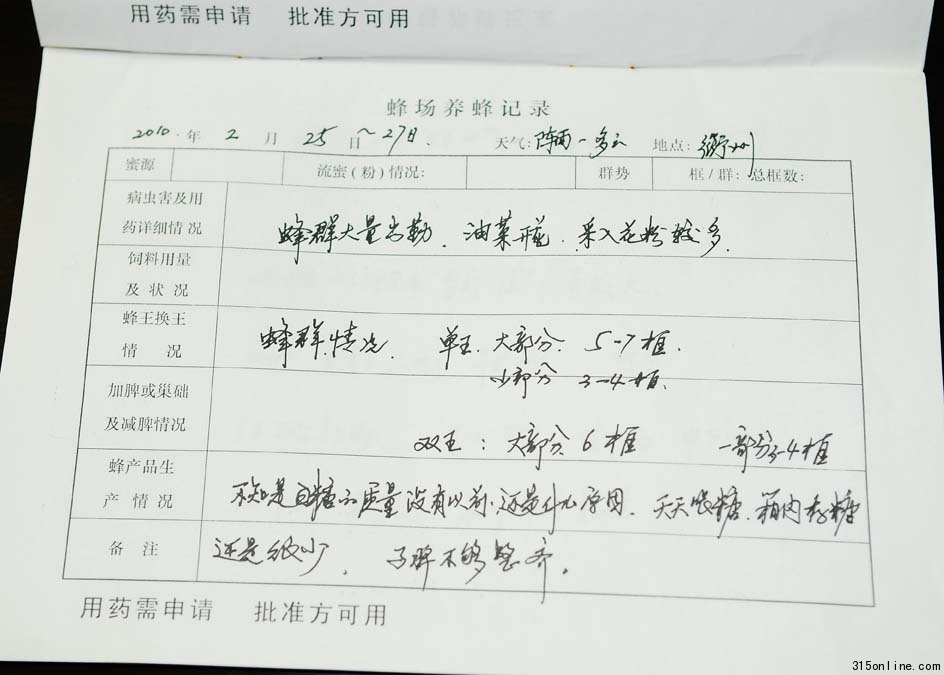 用药需申请 批准方可用
蜂场养蜂记录
2010 年 2 月 25 日～27日. 天气: 阵雨-多云 地点: 衢州
蜜源 流蜜(粉)情况: 群势 框/群: 总框数:
病虫害及用
药详细情况 蜂群大量出勤. 油菜开花. 采入花粉较多.
饲料用量
及状况
蜂王换王
情况 蜂群情况. 单王. 大部分. 5-7框.
少部分 3-4框.
加脾或巢础
及减脾情况 双王: 大部分 6框 一部分3-4框
蜂产品生
产情况 不知是白糖的质量没有以前.还是什么原因. 天天喂糖.箱内存糖
备注 还是很少. 子脾不够整齐.
用药需申请 批准方可用
315online.com